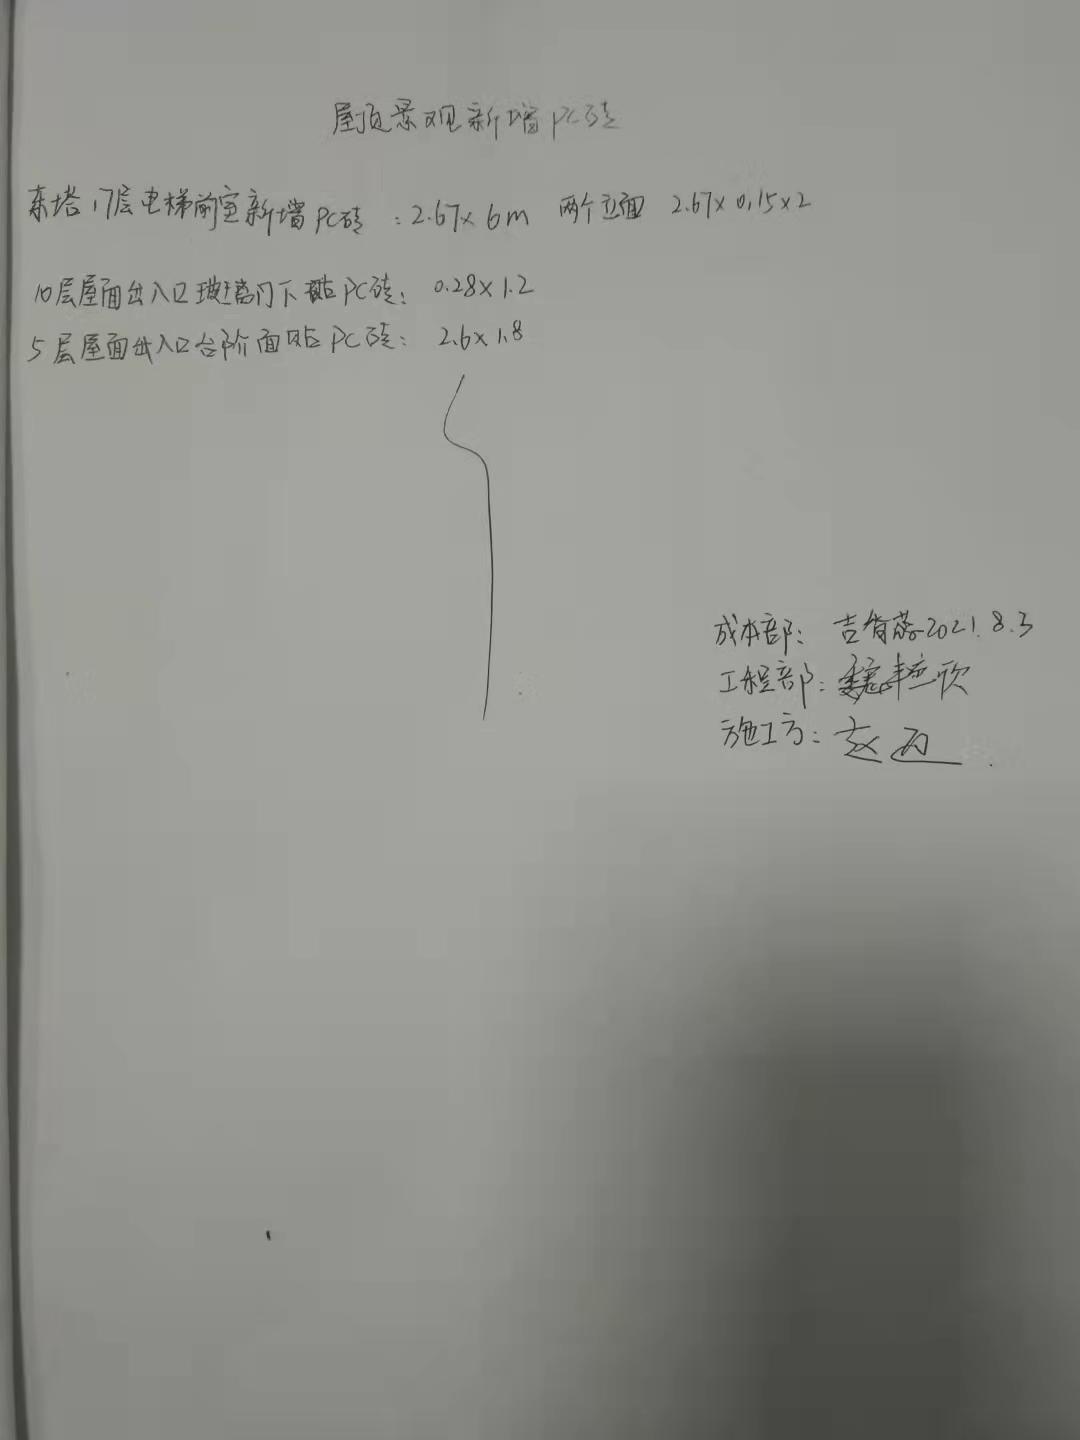 屋顶景观新增PC砖
东塔17层电梯前室新增PC砖：2.67×6m 两个立面 2.67×0.15×2
10层屋面出入口玻璃门下贴PC砖：0.28×1.2
5层屋面出入口台阶面贴PC砖：2.6×1.8
成本部：2021.8.3
工程部：
施工方：赵